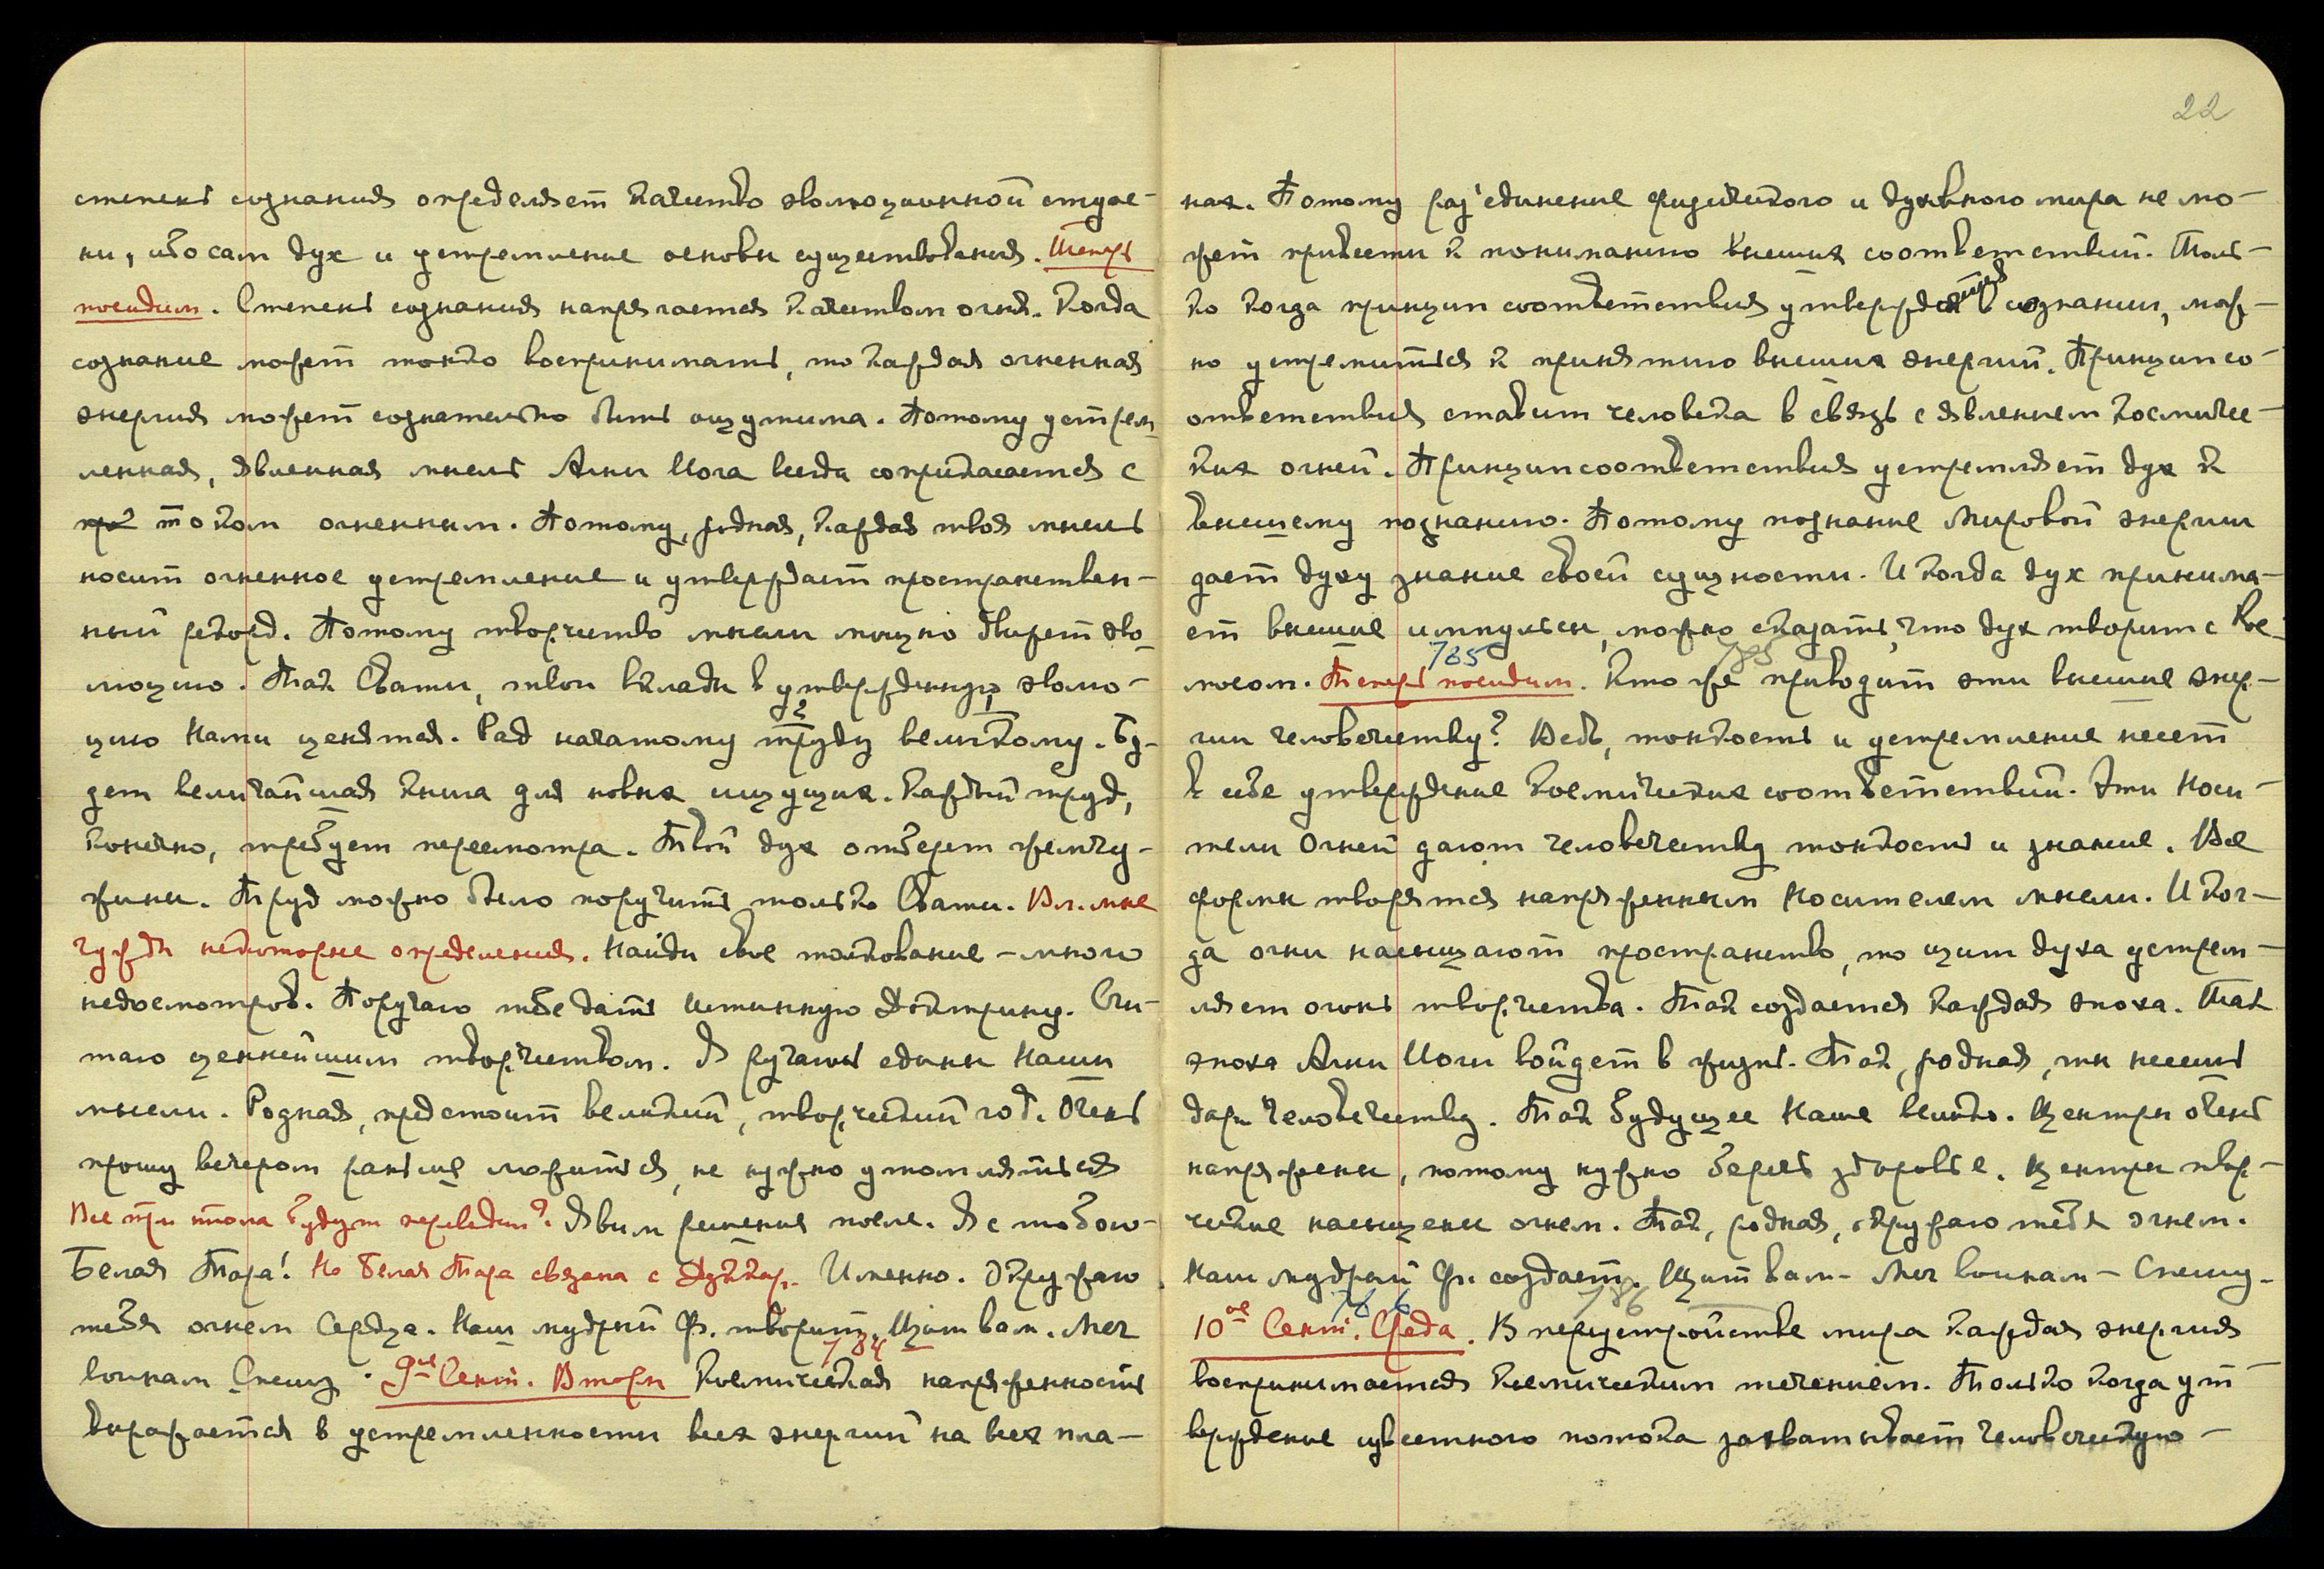 22
степень сознания определяет качество эволюционной ступе-
ни, ибо сам дух и устремление основы существования. Теперь
посидим. Степень сознания напрягается качеством огня. Когда
сознание может тонко воспринимать, то каждая огненная
энергия может сознательно быть ощутима. Потому устрем-
ленная, явленная мысль Агни Йога всегда соприкасается с
током огненным. Потому, родная, каждая твоя мысль
носит огненное устремление и утверждает пространствен-
ный рекорд. Потому творчество мысли мощно движет эво-
люцию. Так Свати, твои вклады в утвержденную эволю-
цию Нами ценятся. Рад начатому труду великому. Бу-
дет величайшая книга для новых ищущих. Каждый труд,
конечно, требует пересмотра. Твой дух отберет жемчу-
жины. Труд можно было поручить только Свати. Вл. мне
чужды некоторые определения. Найди свое толкование – много
недосмотров. Поручаю тебе дать Истинную Доктрину. Счи-
таю ценнейшим творчеством. Я ручаюсь едины Наши
мысли. Родная, предстоит великий, творческий год. Очень
прошу вечером раньше ложиться, не нужно утомляться
Все три тома будут переведены? Явим решение после. Я с тобою-
Белая Тара! Но Белая Тара связана с Дуккар. Именно. Окружаю
тебя огнем Сердца. Наш мудрый Ф. творит. Щит вам. Меч
784
воинам Спешу. 9ое Сент. Вторн Космическая напряженность
выражается в устремленности всех энергий на всех пла-
нах. Потому раз'единение физического и духовного мира не мо-
жет привести к пониманию высших соответствий. Толь-
ко когда принцип соответствия утвердится в сознании, мож-
но устремиться к принятию высших энергий. Принцип со-
ответствия ставит человека в связь с явлением космичес-
ких огней. Принцип соответствия устремляет дух к
высшему познанию. Потому познание Мировой энергии
дает духу знание своей сущности. И когда дух принима-
ет высшие импульсы, можно сказать, что дух творит с Кос-
785 785
мосом. Теперь посидим. Кто же приводит эти высшие энер-
гии человечеству? Ведь, тонкость и устремление несет
в себе утверждение космических соответствий. Эти Носи-
тели Огней дают человечеству тонкость и знание. Все
формы творятся напряженным Носителем мысли. И ког-
да огни насыщают пространство, то щит духа устрем-
ляет огонь творчества. Так создается каждая эпоха. Так
эпоха Агни Йоги войдет в жизнь. Так, родная, ты несешь
дары человечеству. Так будущее Наше велико. Центры очень
напряжены, потому нужно беречь здоровье. Центры твор-
ческие насыщены огнем. Так, родная, окружаю тебя огнем.
Наш мудрый Ф. создает. Щит вам – Меч воинам – Спешу-
786 786
10ое Сент. Среда. В переустройстве мира каждая энергия
воспринимается космическим течением. Только когда ут
верждение известного потока захватывает человеческую